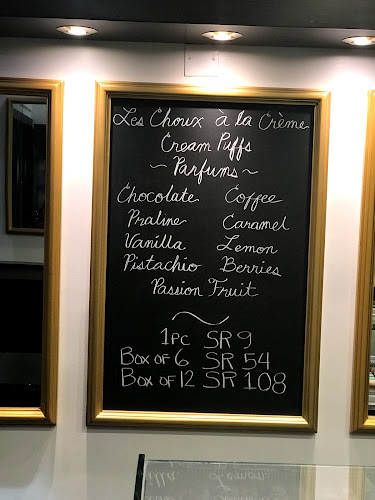 Les Choux à la Crème
Cream Puffs
~ Parfums ~
Chocolate Coffee
Praline Caramel
Vanilla Lemon
Pistachio Berries
Passion Fruit
1pc SR 9
Box of 6 SR 54
Box of 12 SR 108